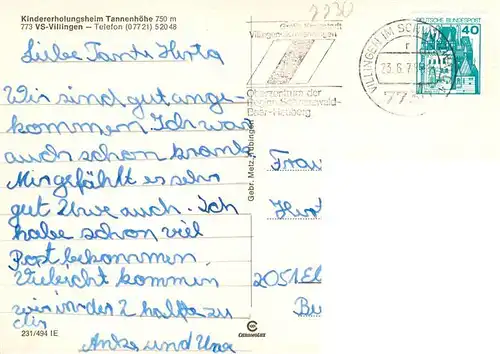 Kindererholungsheim Tannenhöhe 750 m
773 VS-Villingen – Telefon (07721) 52048
Liebe Tante Herta
Wir sind gut ange-
kommen. Ich war
auch schon krank
Mir gefählt es sehr
gut Uwe auch. Ich
habe schon viel
Post bekommen
Vieleicht kommen
wir in der 2 hälfte zu
dir
Anke und Uwe
231/494 IE
Gebr. Metz, Tübingen
CEKAMOGEXE
2230
Villingen-Schwenningen
Oberzentrum der
Region Schwarzwald-
Baar-Heuberg
VILLINGEN IM SCHWARZW
23.6.7
773
DEUTSCHE BUNDESPOST
40
Frau
Hert
2051 El
Bu